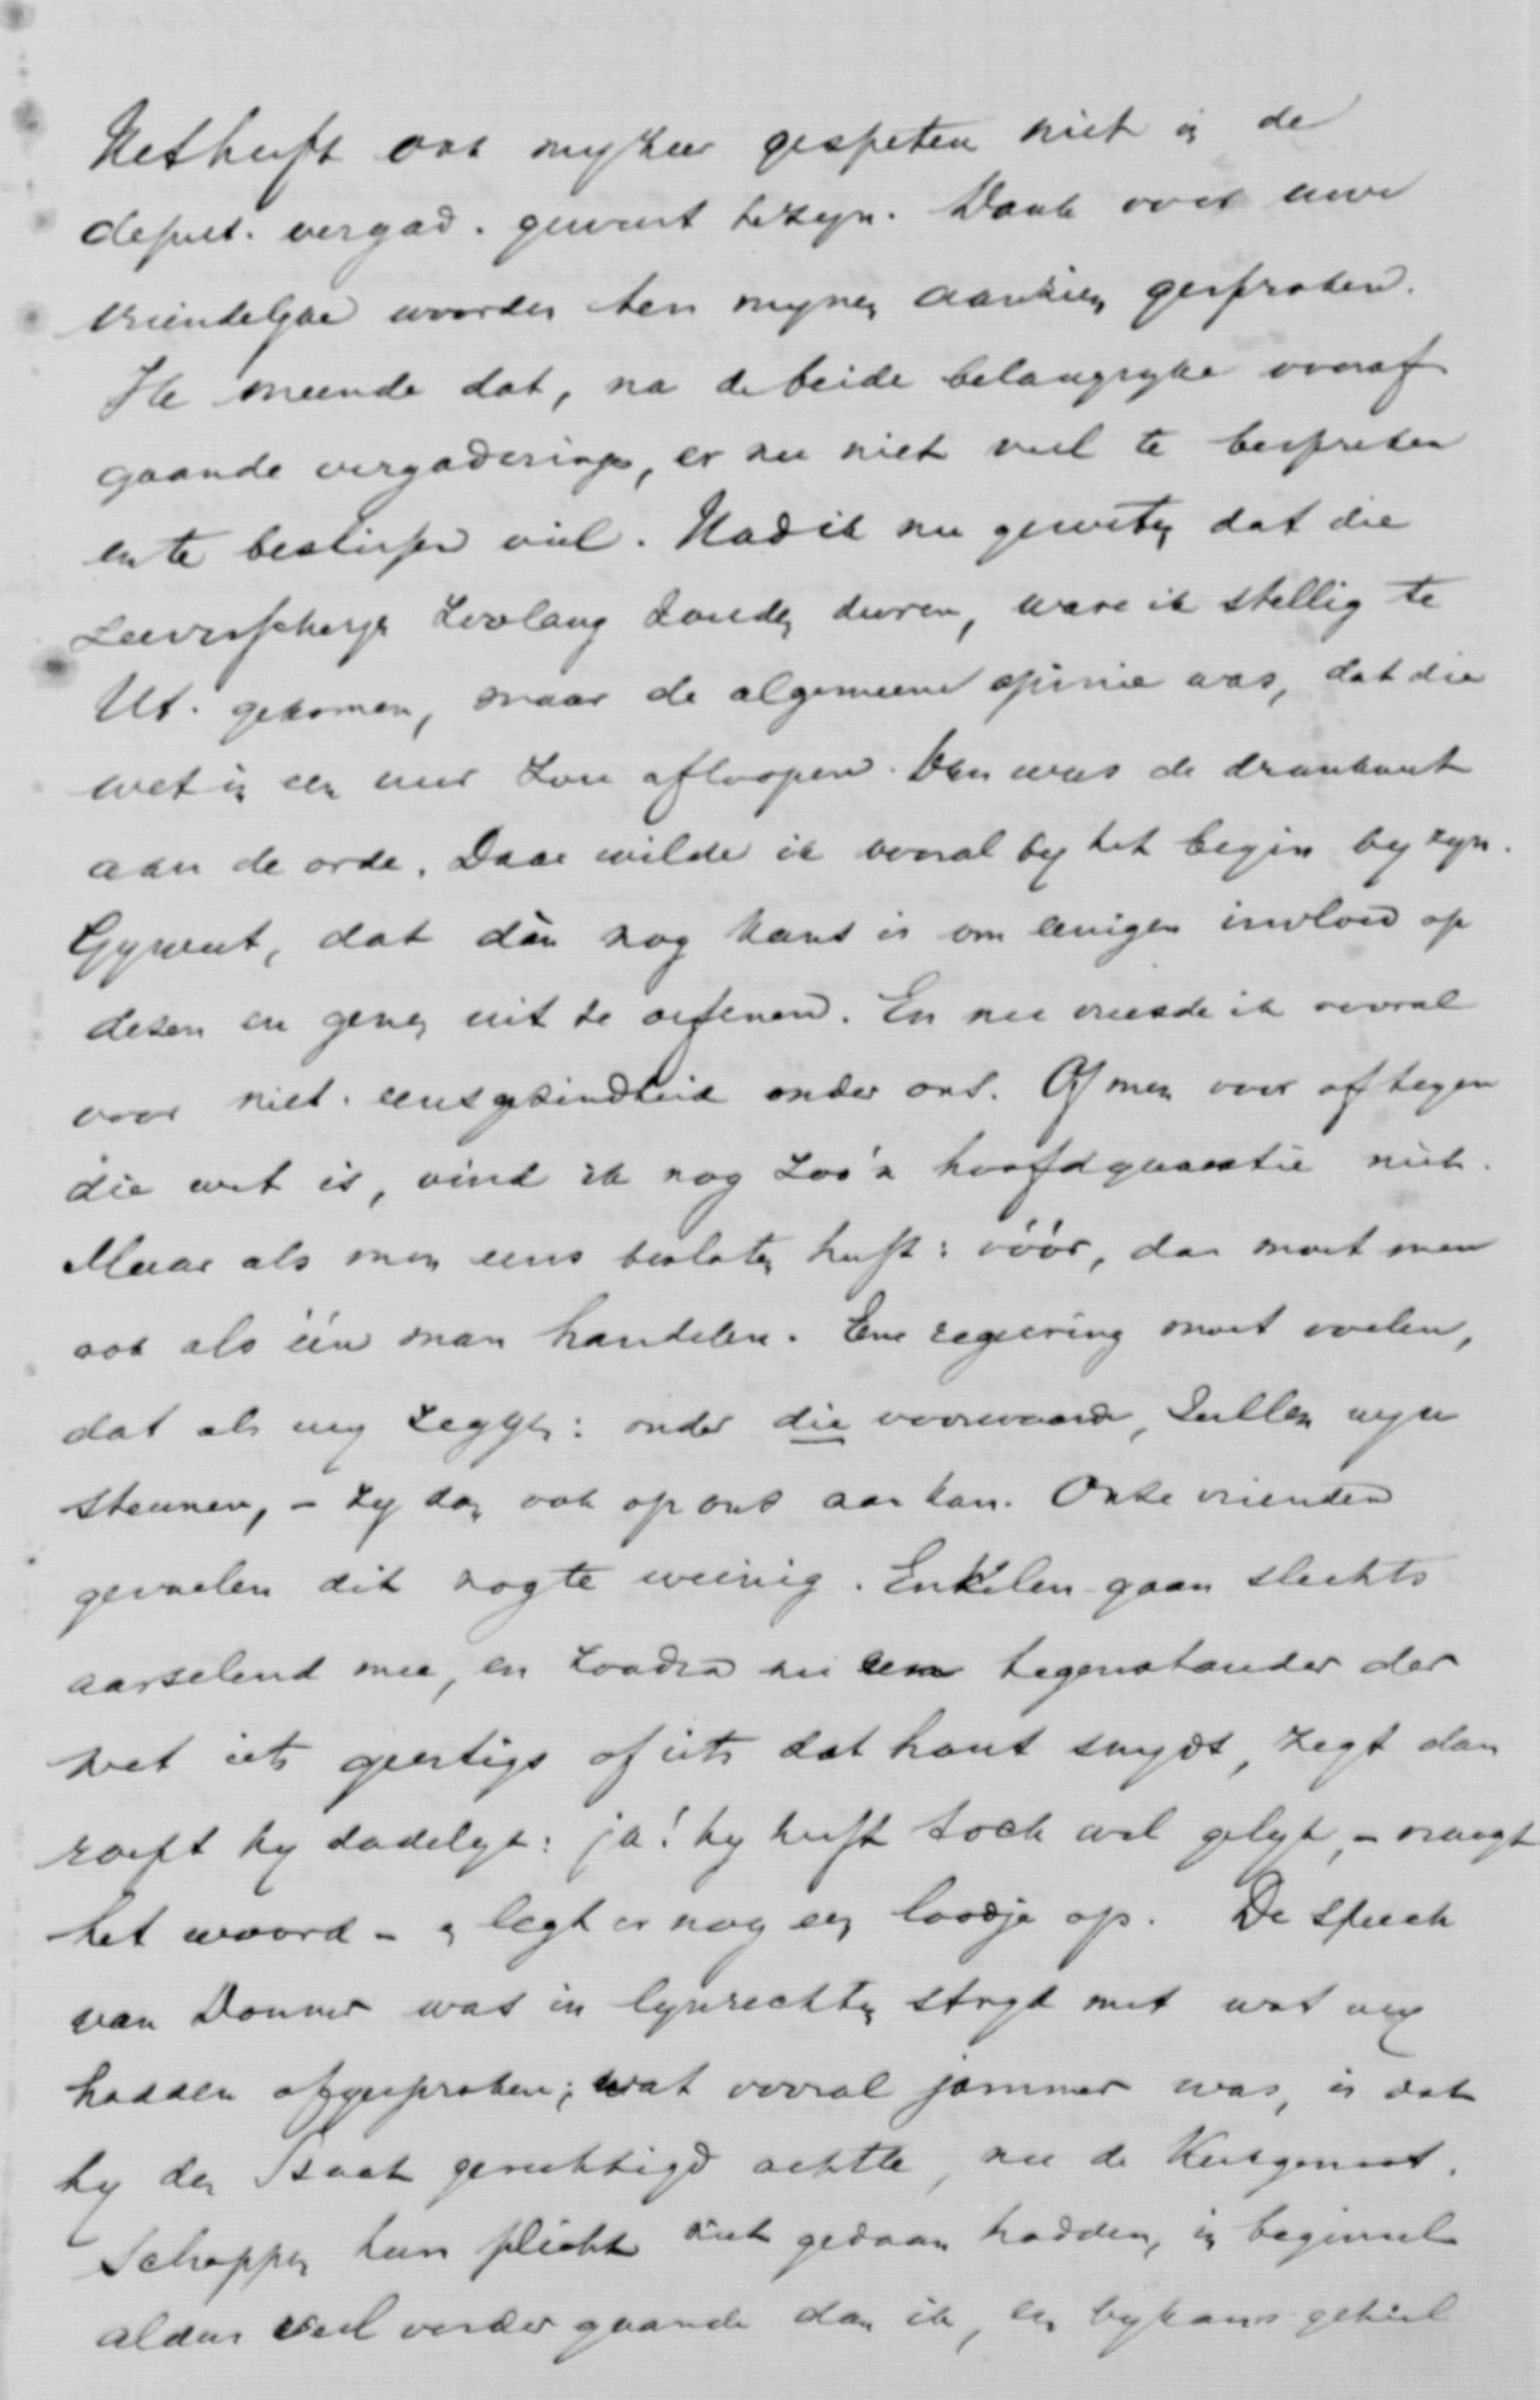 Het heeft ook my zeer gespeten niet in de
deput. vergad. geweest te zyn. Dank voor uwe
vriendelyke woorden ten mynen aanzien gesproken.
Ik meende dat, na de beide belangryke vooraf
gaande vergaderingen, er nu niet veel te bespreken
en te beslissen viel. Had ik nu geweten dat die
zoolang zouden duren, ware ik stellig te
Ut. gekomen, maar de algemeene opinie was, dat die
wet in een uur zou afloopen. Dan was de drankwet
aan de orde. Daar wilde ik vooral by het begin by zyn.
Gy weet, dat dàn nog kans is om eenigen invloed op
dezen en genen uit te oefenen. En nu vreesde ik vooral
voor niet-eensgezindheid onder ons. Of men voor of tegen
die wet is, vind ik nog zoo'n hoofdquaestie niet.
Maar als men eens besloten heeft: vóór, dan moet men
ook als één man handelen. Eene regeering moet voelen,
dat als wy zeggen: onder die voorwaarde, zullen wy u
steunen, - zy dan ook op ons aan kan. Onze vrienden
gevoelen dit nog te weinig. Enkelen gaan slechts
aarzelend mee, en zoodra nu een tegenstander der
wet iets geestigs of iets dat hout snydt, zegt dan
roept hy dadelyk: ja! hy heeft toch wel gelyk, - vraagt
het woord - en legt er nog een loodje op. De speech
van Donner was in lynrechten stryd met wat wy
hadden afgesproken; wat vooral jammer was, is dat
hy den Staat gerechtigd achtte, nu de Kerkgenoot-
schappen hun plicht niet gedaan hadden, in beginsel
aldus veel verder gaande dan ik, en bykans geheel